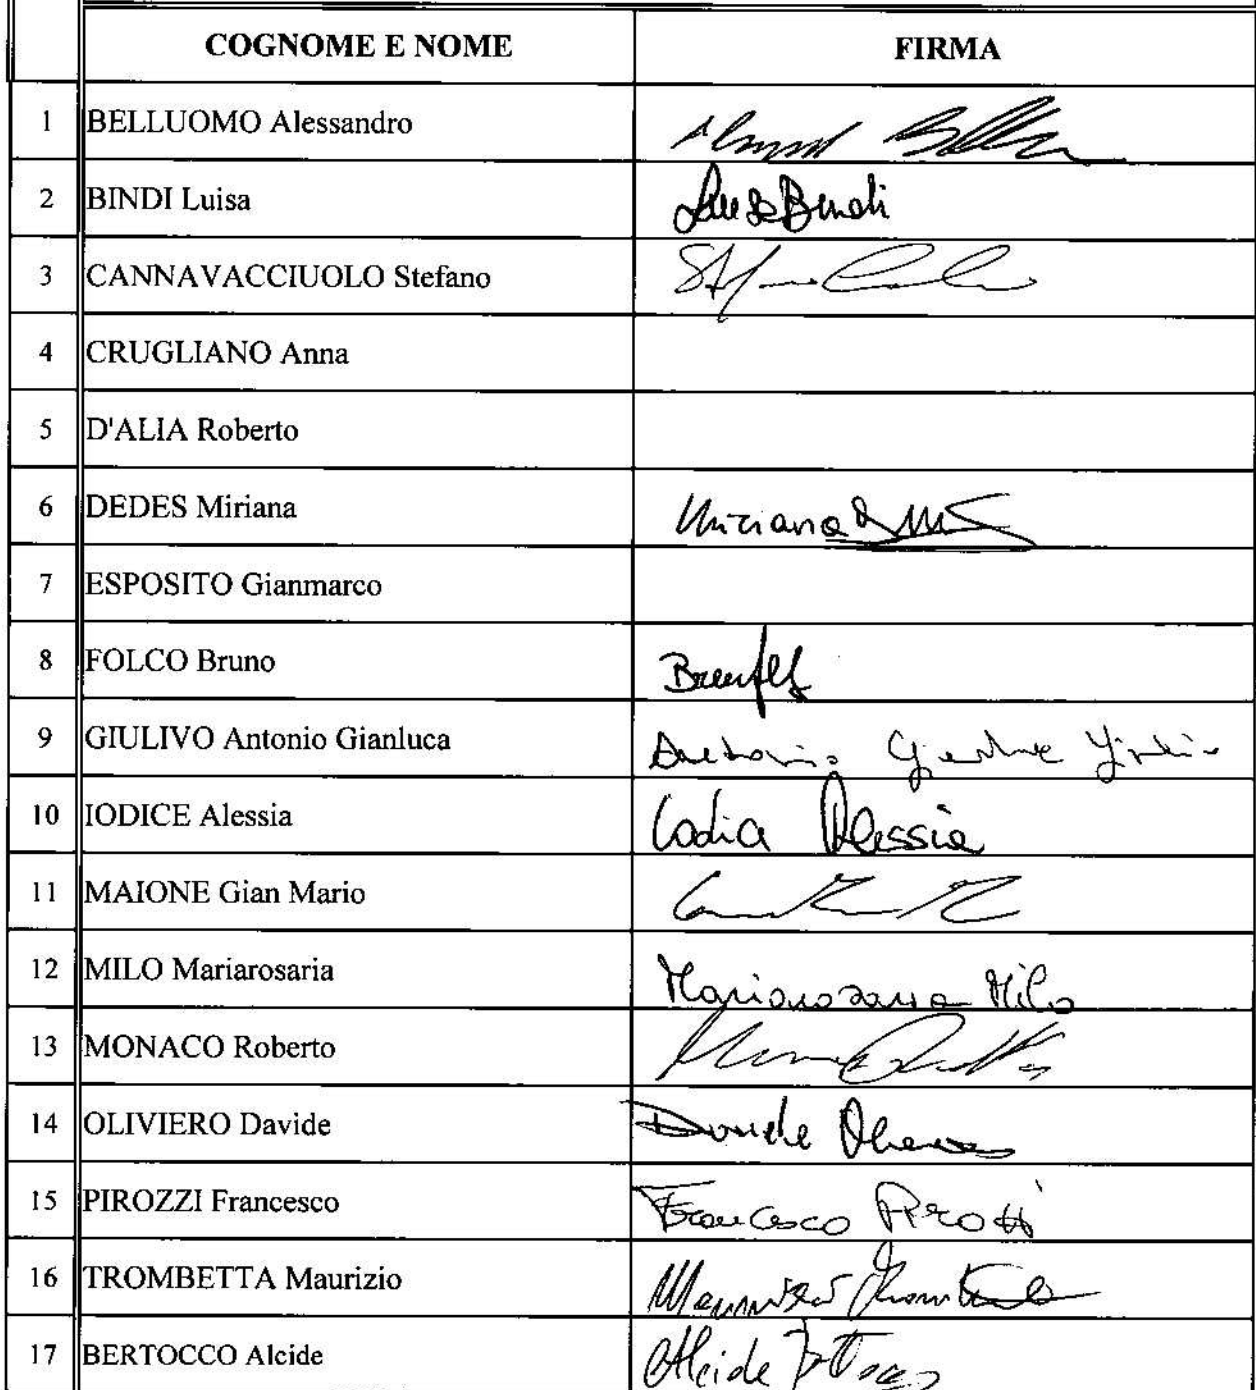 COGNOME E NOME FIRMA
1 BELLUOMO Alessandro
2 BINDI Luisa Luisa Bindi
3 CANNAVACCIUOLO Stefano
4 CRUGLIANO Anna
5 D'ALIA Roberto
6 DEDES Miriana Miriana
7 ESPOSITO Gianmarco
8 FOLCO Bruno
9 GIULIVO Antonio Gianluca Antonio
10 IODICE Alessia Alessia
11 MAIONE Gian Mario
12 MILO Mariarosaria Mariarosaria Milo
13 MONACO Roberto
14 OLIVIERO Davide Davide
15 PIROZZI Francesco Francesco Pirozzi
16 TROMBETTA Maurizio
17 BERTOCCO Alcide Alcide